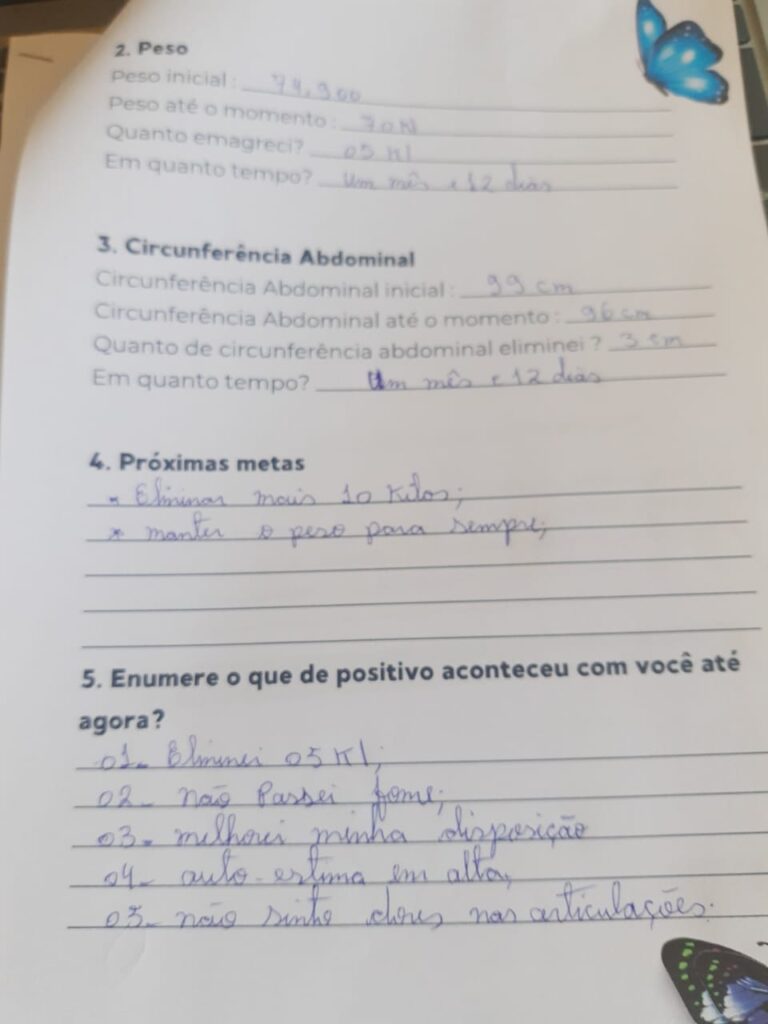 2. Peso
Peso inicial : 74,900
Peso até o momento : 70 Kl
Quanto emagreci? 05 Kl
Em quanto tempo? Um mês e 12 dias
3. Circunferência Abdominal
Circunferência Abdominal inicial : 99 cm
Circunferência Abdominal até o momento : 96 cm
Quanto de circunferência abdominal eliminei ? 3 cm
Em quanto tempo? Um mês e 12 dias
4. Próximas metas
* Eliminar mais 10 Kilos;
* manter o peso para sempre;
5. Enumere o que de positivo aconteceu com você até
agora?
01- Eliminei 05 Kl;
02- não Passei fome;
03- melhorei minha disposição
04- auto-estima em alta,
05- não sinto dores nas articulações.